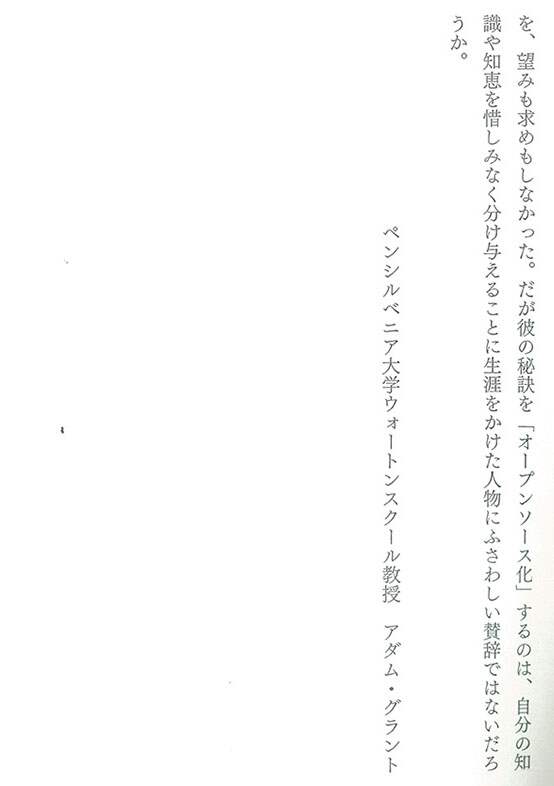 を、望みも求めもしなかった。だが彼の秘訣を「オープンソース化」するのは、自分の知
識や知恵を惜しみなく分け与えることに生涯をかけた人物にふさわしい賛辞ではないだろ
うか。
ペンシルベニア大学ウォートンスクール教授　アダム・グラント